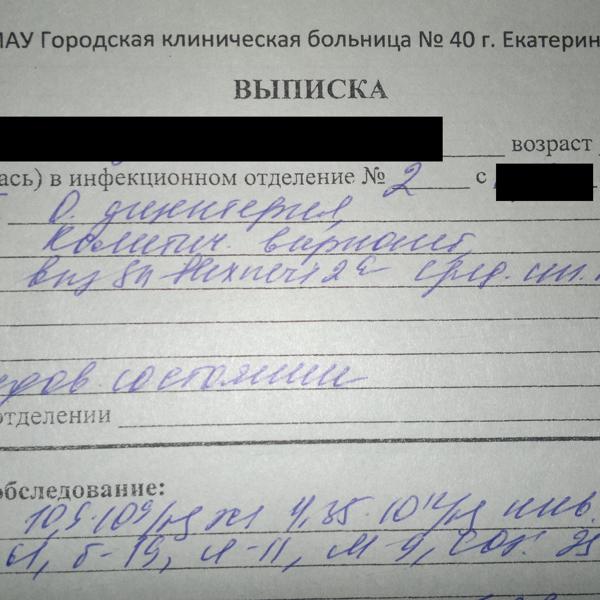 МАУ Городская клиническая больница № 40 г. Екатерин
ВЫПИСКА
возраст
ась) в инфекционном отделение № 2 с
О. дизентерия,
Колитич. вариант,
вызв Sh. Flexneri 2a сред. ст.
состоянии
отделении
обследование:
10,5·10⁹/л 4,35·10¹²/л
б-19, л-11, м-9,